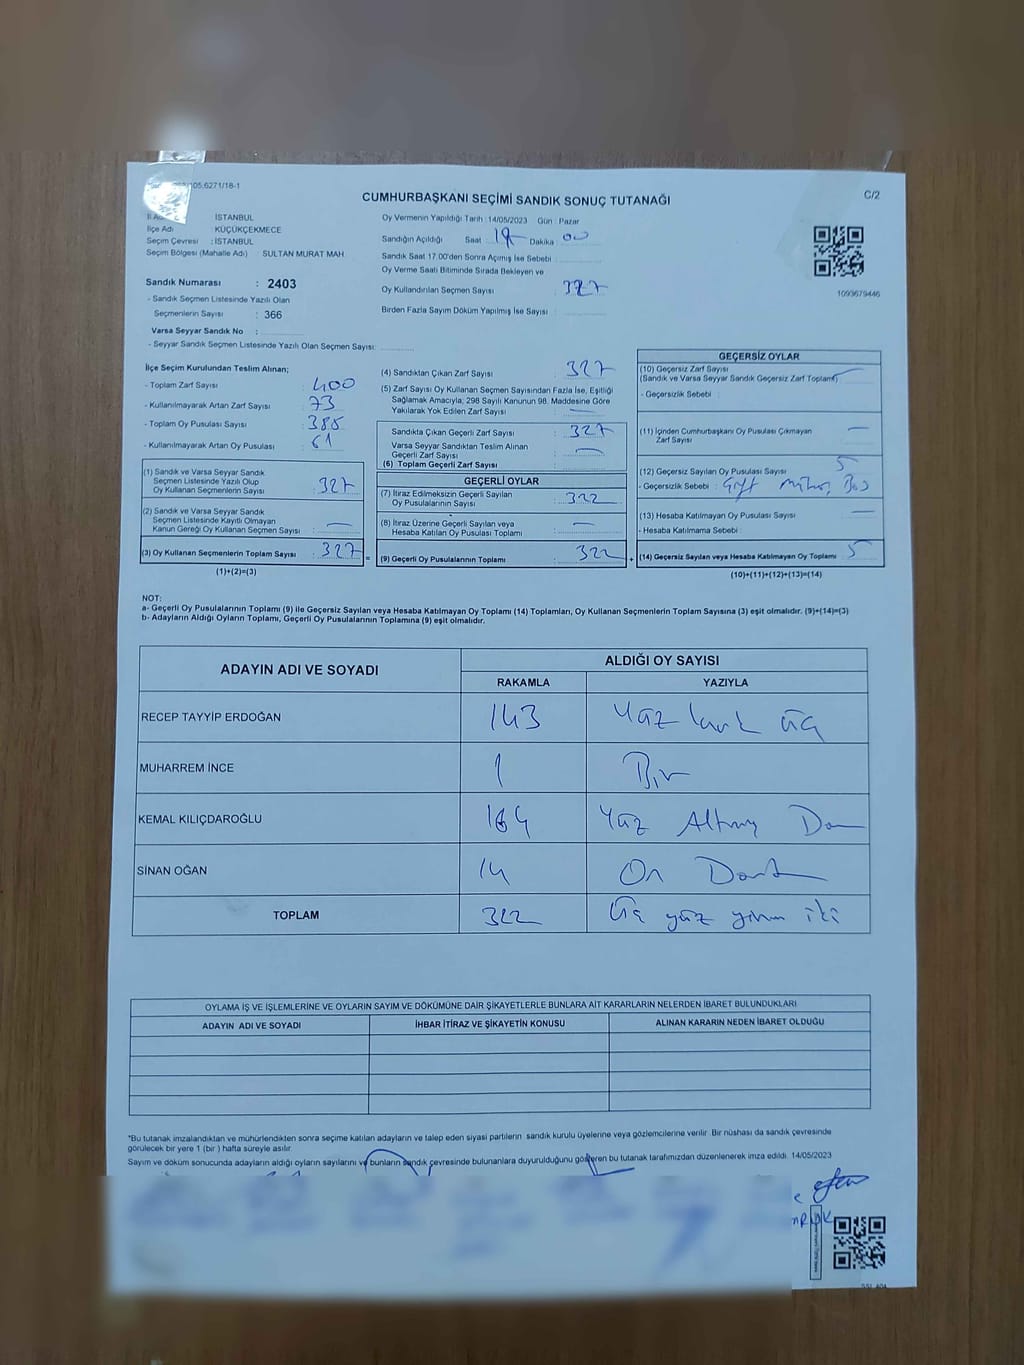 105.6271/18-1
CUMHURBAŞKANI SEÇİMİ SANDIK SONUÇ TUTANAĞI
C/2
İl Adı : İSTANBUL
İlçe Adı : KÜÇÜKÇEKMECE
Seçim Çevresi : İSTANBUL
Seçim Bölgesi (Mahalle Adı) SULTAN MURAT MAH.
Sandık Numarası : 2403
- Sandık Seçmen Listesinde Yazılı Olan
Seçmenlerin Sayısı : 366
Varsa Seyyar Sandık No :
- Seyyar Sandık Seçmen Listesinde Yazılı Olan Seçmen Sayısı:
Oy Vermenin Yapıldığı Tarih :14/05/2023 Gün : Pazar
Sandığın Açıldığı Saat Dakika : 00
Sandık Saat 17.00'den Sonra Açımış İse Sebebi :
Oy Verme Saati Bitiminde Sırada Bekleyen ve
Oy Kullandırılan Seçmen Sayısı : 327
Birden Fazla Sayım Döküm Yapılmış İse Sayısı :
1093679446
İlçe Seçim Kurulundan Teslim Alınan;
- Toplam Zarf Sayısı : 400
- Kullanılmayarak Artan Zarf Sayısı : 73
- Toplam Oy Pusulası Sayısı : 388
- Kullanılmayarak Artan Oy Pusulası : 61
(1) Sandık ve Varsa Seyyar Sandık
Seçmen Listesinde Yazılı Olup
Oy Kullanan Seçmenlerin Sayısı : 327
(2) Sandık ve Varsa Seyyar Sandık
Seçmen Listesinde Kayıtlı Olmayan
Kanun Gereği Oy Kullanan Seçmen Sayısı : —
(3) Oy Kullanan Seçmenlerin Toplam Sayısı : 327 =
(1)+(2)=(3)
(4) Sandıktan Çıkan Zarf Sayısı : 327
(5) Zarf Sayısı Oy Kullanan Seçmen Sayısından Fazla İse, Eşitliği
Sağlamak Amacıyla; 298 Sayılı Kanunun 98. Maddesine Göre
Yakılarak Yok Edilen Zarf Sayısı : —
Sandıkta Çıkan Geçerli Zarf Sayısı : 327
Varsa Seyyar Sandıktan Teslim Alınan
Geçerli Zarf Sayısı : —
(6) Toplam Geçerli Zarf Sayısı :
GEÇERLİ OYLAR
(7) İtiraz Edilmeksizin Geçerli Sayılan
Oy Pusulalarının Sayısı : 322
(8) İtiraz Üzerine Geçerli Sayılan veya
Hesaba Katılan Oy Pusulası Toplamı : —
(9) Geçerli Oy Pusulalarının Toplamı : 322 +
GEÇERSİZ OYLAR
(10) Geçersiz Zarf Sayısı
(Sandık ve Varsa Seyyar Sandık Geçersiz Zarf Toplamı) —
- Geçersizlik Sebebi :
(11) İçinden Cumhurbaşkanı Oy Pusulası Çıkmayan
Zarf Sayısı : —
(12) Geçersiz Sayılan Oy Pusulası Sayısı : 5
- Geçersizlik Sebebi : Çift mühür,
(13) Hesaba Katılmayan Oy Pusulası Sayısı : —
- Hesaba Katılmama Sebebi :
(14) Geçersiz Sayılan veya Hesaba Katılmayan Oy Toplamı : 5
(10)+(11)+(12)+(13)=(14)
NOT:
a- Geçerli Oy Pusulalarının Toplamı (9) ile Geçersiz Sayılan veya Hesaba Katılmayan Oy Toplamı (14) Toplamları, Oy Kullanan Seçmenlerin Toplam Sayısına (3) eşit olmalıdır. (9)+(14)=(3)
b- Adayların Aldığı Oyların Toplamı, Geçerli Oy Pusulalarının Toplamına (9) eşit olmalıdır.
ADAYIN ADI VE SOYADI ALDIĞI OY SAYISI
RAKAMLA YAZIYLA
RECEP TAYYİP ERDOĞAN 143 Yüz kırk üç
MUHARREM İNCE 1 Bir
KEMAL KILIÇDAROĞLU 164 Yüz Altmış
SİNAN OĞAN 14 On Dört
TOPLAM 322 Üç yüz yirmi iki
OYLAMA İŞ VE İŞLEMLERİNE VE OYLARIN SAYIM VE DÖKÜMÜNE DAİR ŞİKAYETLERLE BUNLARA AİT KARARLARIN NELERDEN İBARET BULUNDUKLARI
ADAYIN ADI VE SOYADI İHBAR İTİRAZ VE ŞİKAYETİN KONUSU ALINAN KARARIN NEDEN İBARET OLDUĞU
*Bu tutanak imzalandıktan ve mühürlendikten sonra seçime katılan adayların ve talep eden siyasi partilerin sandık kurulu üyelerine veya gözlemcilerine verilir. Bir nüshası da sandık çevresinde
görülecek bir yere 1 (bir ) hafta süreyle asılır.
Sayım ve döküm sonucunda adayların aldığı oyların sayılarını ve bunların sandık çevresinde bulunanlara duyurulduğunu gösteren bu tutanak tarafımızdan düzenlenerek imza edildi. 14/05/2023